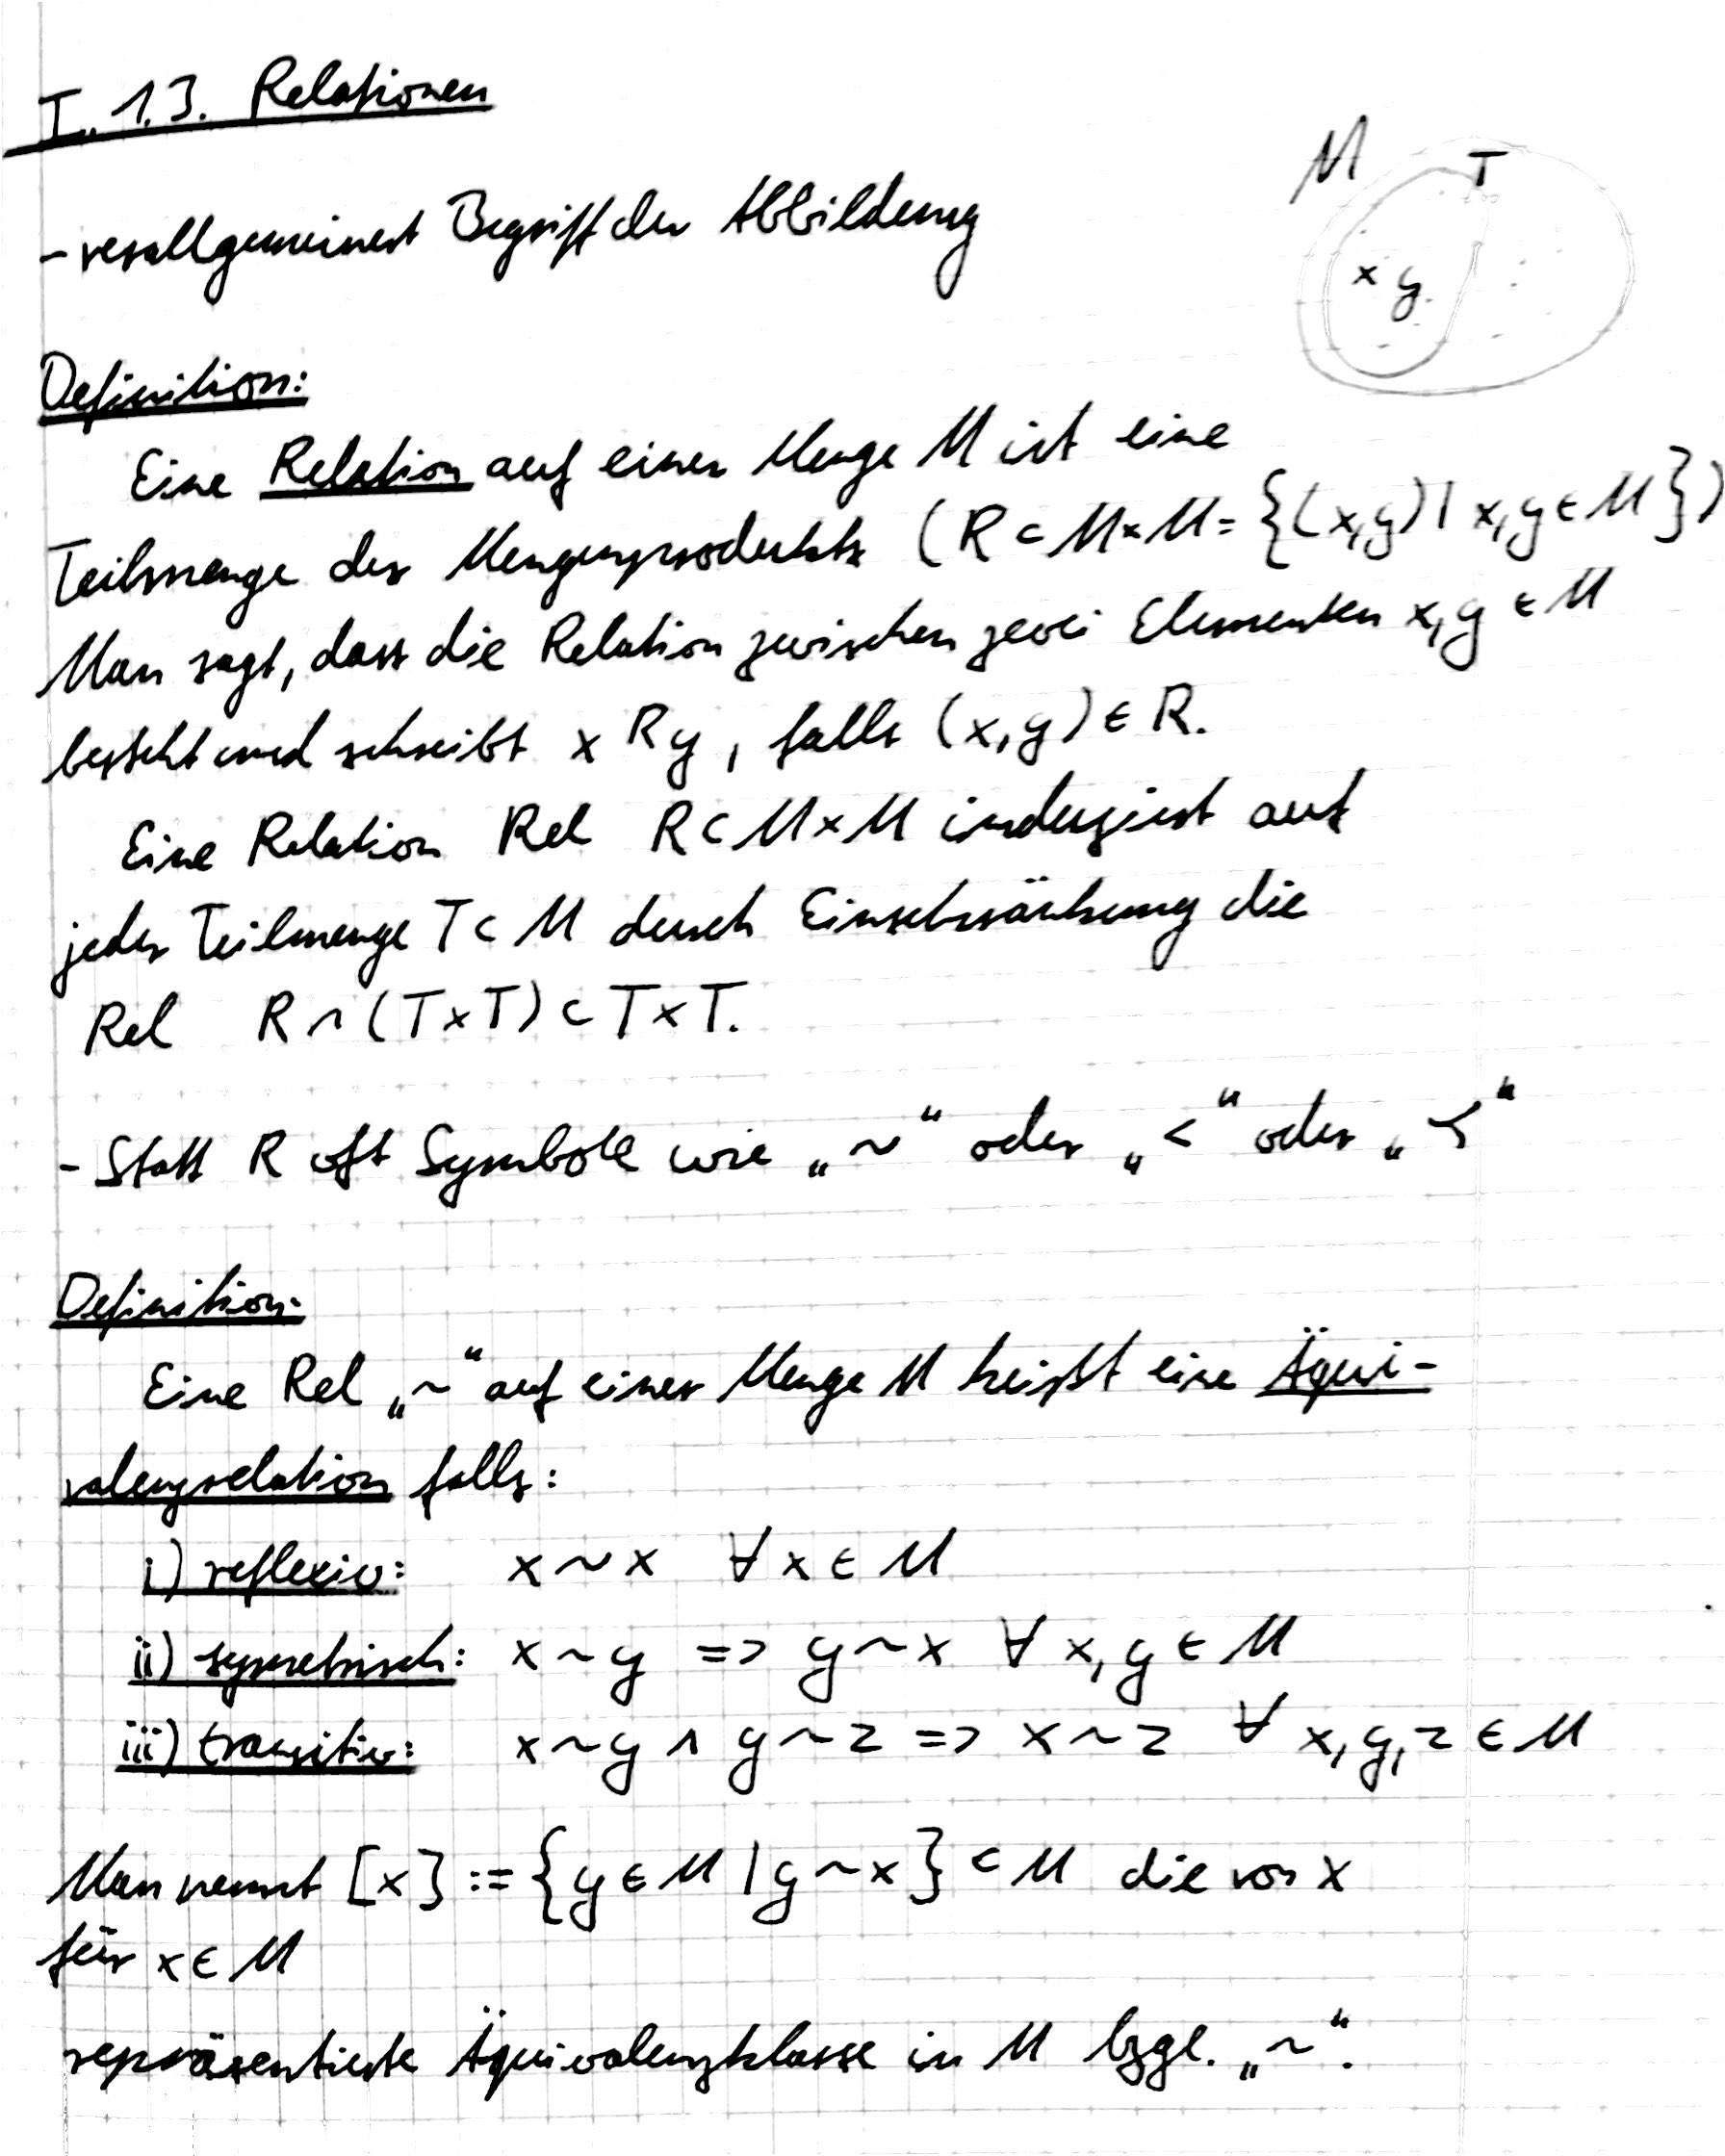 I. 1.3. Relationen
M T
x y
- verallgemeinert Begriff der Abbildung
Definition:
Eine Relation auf einer Menge M ist eine
Teilmenge des Mengenprodukts (R ⊂ M×M = {(x,y) | x,y ∈ M})
Man sagt, dass die Relation zwischen zwei Elementen x,y ∈ M
besteht und schreibt x R y, falls (x,y) ∈ R.
Eine Relation Rel R ⊂ M×M induziert auf
jeder Teilmenge T ⊂ M durch Einschränkung die
Rel R ∩ (T×T) ⊂ T×T.
- Statt R oft Symbole wie „~“ oder „<“ oder „≺“
Definition:
Eine Rel „~“ auf einer Menge M heißt eine Äqui-
valenzrelation falls:
i) reflexiv: x ~ x ∀ x ∈ M
ii) symmetrisch: x ~ y => y ~ x ∀ x, y ∈ M
iii) transitiv: x ~ y ∧ y ~ z => x ~ z ∀ x, y, z ∈ M
Man nennt [x] := {y ∈ M | y ~ x} ⊂ M die von x
für x ∈ M
repräsentierte Äquivalenzklasse in M bzgl. „~“.